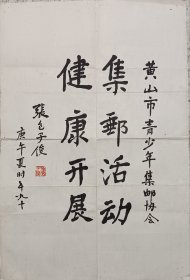 黄山市青少年集邮协会
集邮活动
健康开展
張包子俊
庚午夏时年九十